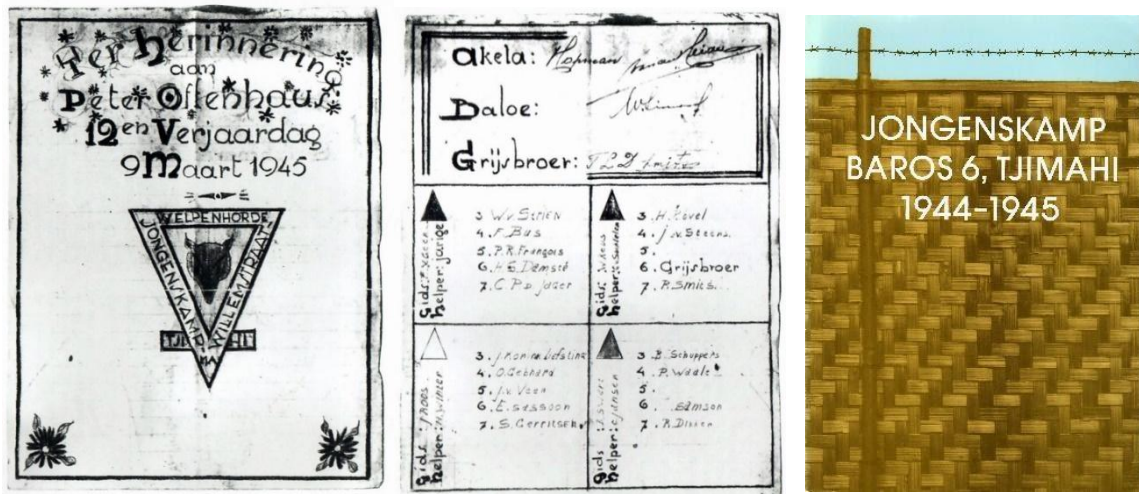 Ter herinnering
aan
Peter Offenhaus'
12en Verjaardag
9 Maart 1945
WELPENHORDE
JONGENSKAMP
WILLEMSTRAAT
TJIMAHI
Akela: Hopman
Daloe:
Grijsbroer:
Gids:
helper: jarige
3. W.v. Strien
4. F. Bus
5. P.R. François
6. H.E. Demsté
7. C.P. d. Jager
Gids:
helper:
3. H. Hövel
4. J.v. Steens.
5.
6. Grijsbroer
7. R. Smits.
Gids: J ROOS
helper: W. WINTER
3. J. Konin
4. O. Gebhard
5. J.v. Veen
6. E. Sassoon
7. S. Gerritsen
Gids:
helper: C. Jansen
3. B. Schuppers
4. P. Waale
5.
6. Samson
7. R.
JONGENSKAMP
BAROS 6, TJIMAHI
1944-1945